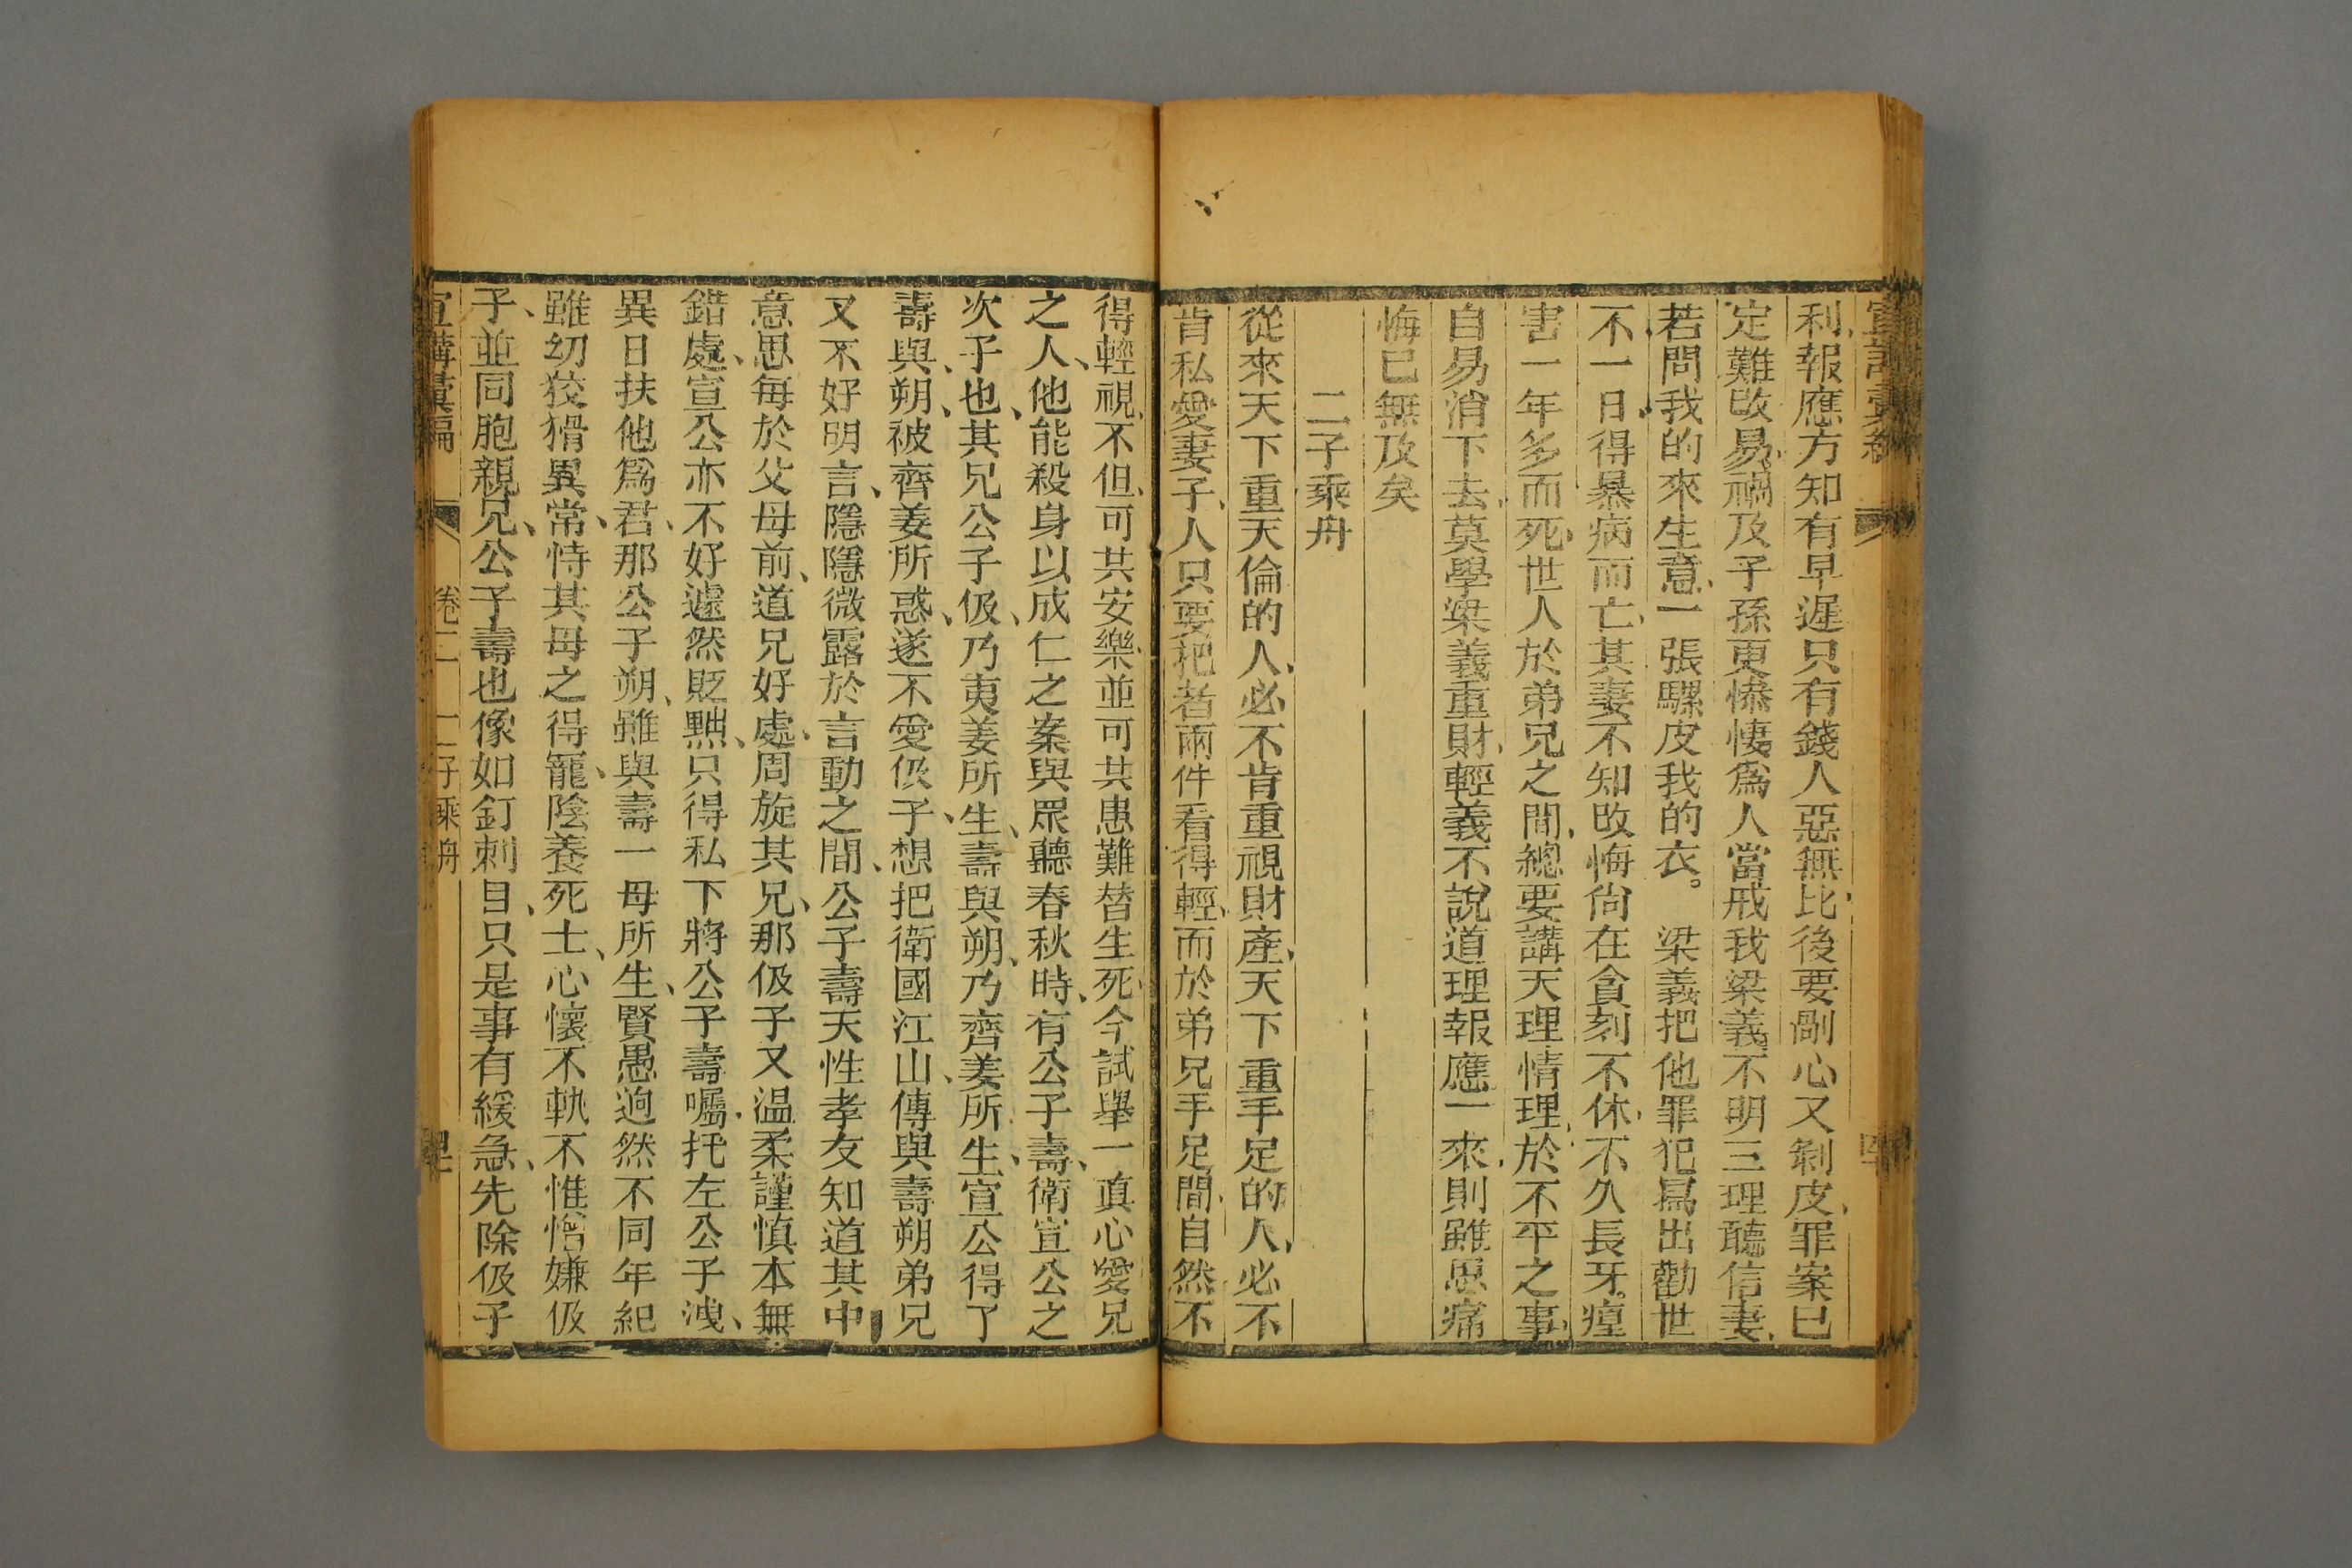 利報應方知有早遲只有錢人惡無比後要剮心又剝皮罪案已
定難改易禍及子孫更慘悽爲人當戒我梁義不明三理聽信妻
若問我的來生意一張騾皮我的衣。梁義把他罪犯寫出勸世
不一日得暴病而亡其妻不知改悔尙在貪刻不休不久長牙。瘟
害一年多而死世人於弟兄之間總要講天理情理於不平之事
自易消下去莫學梁義重財輕義不說道理報應一來則雖思痛
悔已無及矣
二子乘舟
從來天下重天倫的人必不肯重視財產天下重手足的人必不
肯私愛妻子人只要把者兩件看得輕而於弟兄手足間自然不
得輕視不但可共安樂並可共患難替生死今試舉一眞心愛兄
之人、他能殺身以成仁之案與眾聽春秋時、有公子壽、衛宣公之
次子也、其兄公子伋、乃夷姜所生、壽與朔、乃齊姜所生、宣公得了
壽與、朔、被齊姜所惑、遂不愛伋子、想把衛國江山、傳與壽朔弟兄
又不好明言、隱隱微露於言動之間、公子壽天性孝友知道其中
意思每於父母前、道兄好處、周旋其兄、那伋子又溫柔謹慎本無
錯處、宣公亦不好遽然貶黜、只得私下將公子壽囑托左公子洩、
異日扶他爲君、那公子朔、雖與壽一母所生、賢愚迥然不同年紀
雖幼狡猾異常、恃其母之得寵、陰養死士、心懷不軌不惟憎嫌伋
子、並同胞親兄、公子壽也像如釘刺目、只是事有緩急、先除伋子
宣講彙編 卷二 二子乘舟